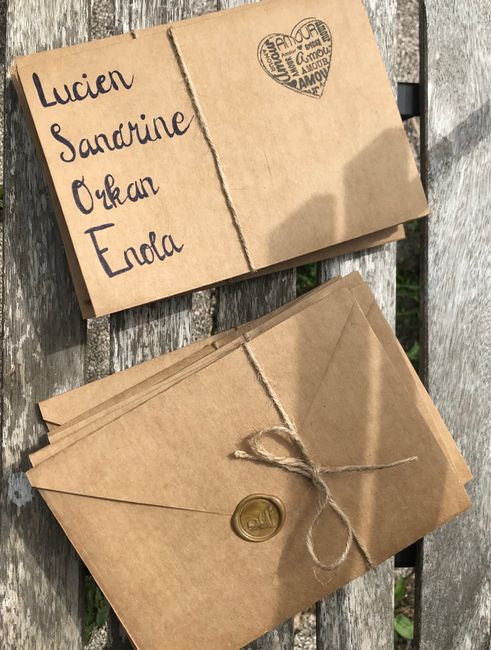 Lucien
Sandrine
Orkan
Enola
AMOUR
Amour
AMOUR
AMOUR